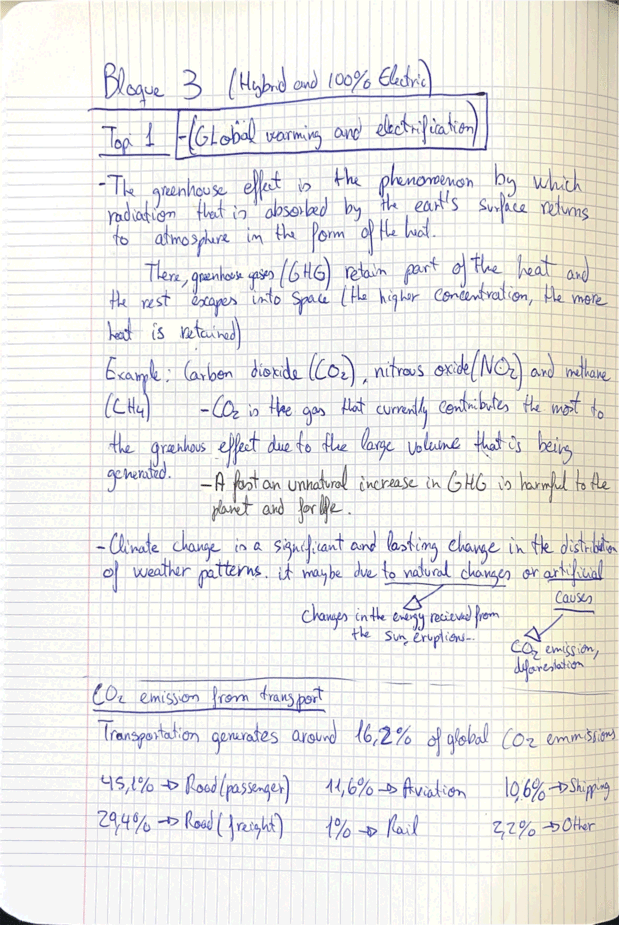 Bloque 3 (Hybrid and 100% Electric)
Topi 1 - (GLobal warming and electrification)
- The greenhouse effect is the phenomenon by which
radiation that is absorbed by the eart's surface returns
to atmosphere in the form of the heat.
There, greenhouse gases (GHG) retain part of the heat and
the rest escapes into space (the higher concentration, the more
heat is retained)
Example: Carbon dioxide (CO2), nitrous oxide (NO2) and methane
(CH4) - CO2 is the gas that currently contributes the most to
the greenhous effect due to the large volume that is being
generated. - A fast an unnatural increase in GHG is harmful to the
planet and for life.
- Climate change is a significant and lasting change in the distribution
of weather patterns. it maybe due to natural changes or artificial
causes
Changes in the energy recieved from
the sun, eruptions...
CO2 emission,
deforestation
CO2 emission from transport
Transportation generates around 16,2% of global CO2 emmissions
45,1% → Road (passenger) 11,6% → Aviation 10,6% → Shipping
29,4% → Road (freight) 1% → Rail 2,2% → Other